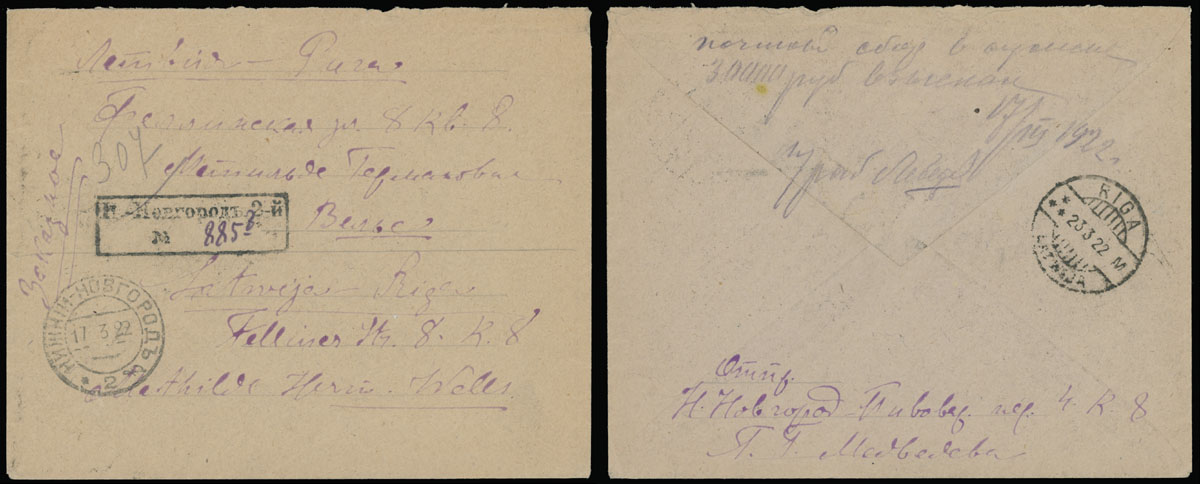 Латвия – Рига
Феллинская ул. 8 кв. 8.
Матильде Германовне
Вельс
Latwija – Riga
Felliner Str. 8. K. 8
Mathilde Herm. Wells.
Заказное
304
Н.-Новгородъ 2-й
№ 885
НИЖНІЙ-НОВГОРОДЪ
17 3 22
* 2 *
почтовый сбор в сумме
30000 руб взыскан
17/III 1922 г.
RIGA
23.3.22 M
LATWIJA
Отпр.
Н. Новгород Пивовар. пер. 4. К. 8
Медведева